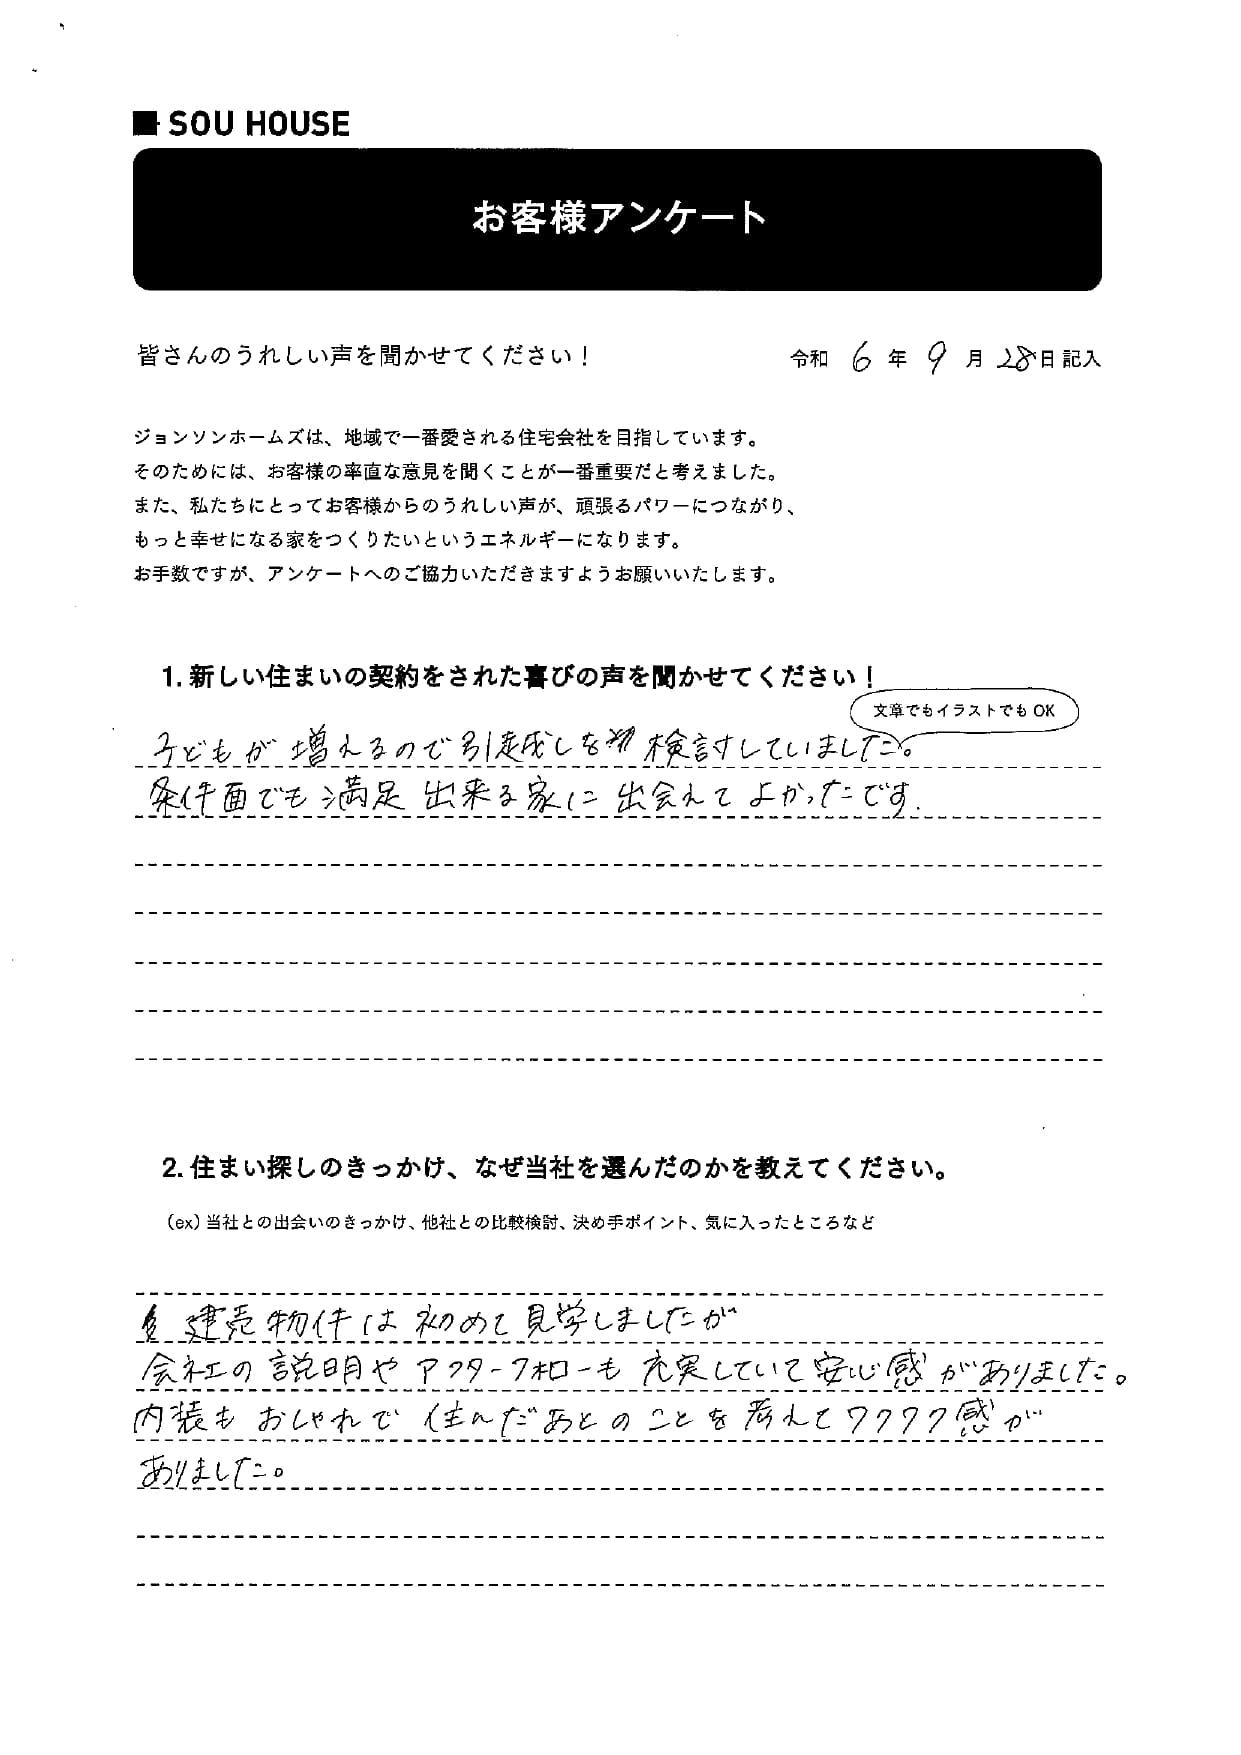 SOU HOUSE
お客様アンケート
皆さんのうれしい声を聞かせてください！
令和 6 年 9 月 28日 記入
ジョンソンホームズは、地域で一番愛される住宅会社を目指しています。
そのためには、お客様の率直な意見を聞くことが一番重要だと考えました。
また、私たちにとってお客様からのうれしい声が、頑張るパワーにつながり、
もっと幸せになる家をつくりたいというエネルギーになります。
お手数ですが、アンケートへのご協力いただきますようお願いいたします。
1. 新しい住まいの契約をされた喜びの声を聞かせてください！
文章でもイラストでも OK
子どもが増えるので引越しを検討していました。
条件面でも満足出来る家に出会えてよかったです.
2. 住まい探しのきっかけ、なぜ当社を選んだのかを教えてください。
（ex）当社との出会いのきっかけ、他社との比較検討、決め手ポイント、気に入ったところなど
建売物件は初めて見学しましたが
会社の説明やアフターフォローも充実していて安心感がありました。
内装もおしゃれで住んだあとのことを考えてワクワク感が
ありました。